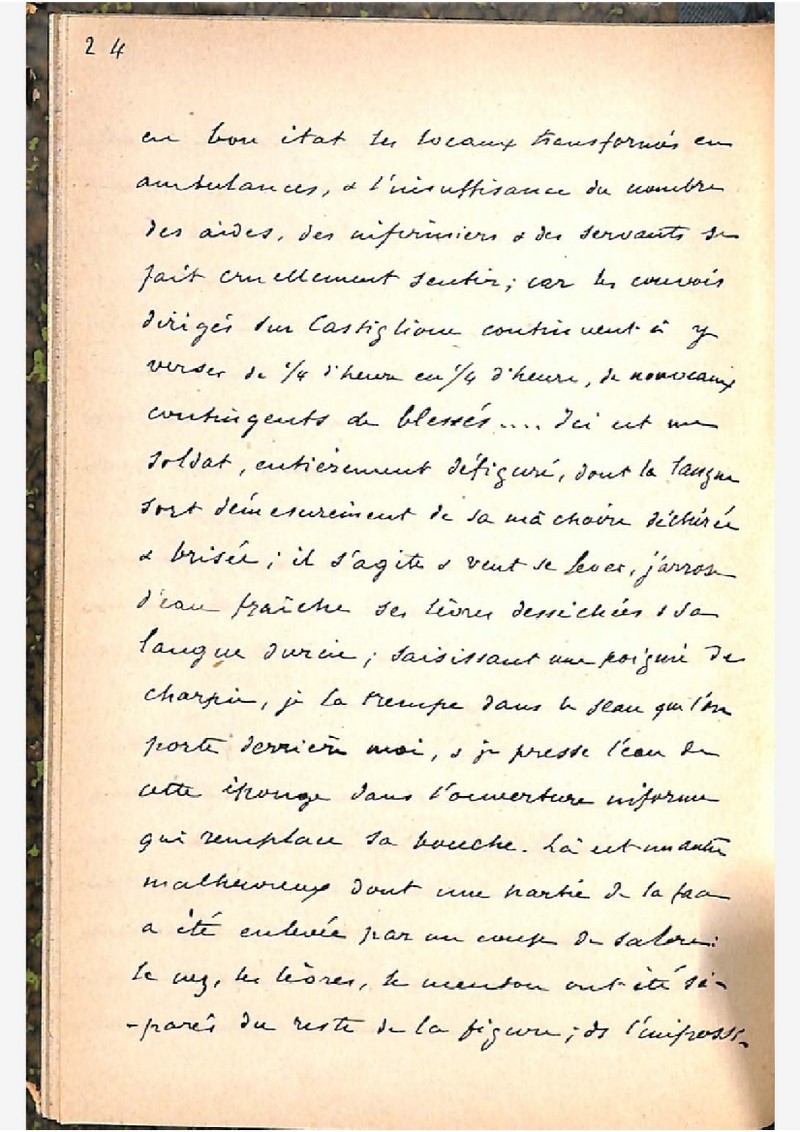 24
en bon état les locaux transformés en
ambulances, & l'insuffisance du nombre
des aides, des infirmiers & des servants se
fait cruellement sentir; car les convois
dirigés sur Castiglione continuent à y
verser de 1/4 d'heure en 1/4 d'heure, de nouveaux
contingents de blessés.... Ici est un
soldat, entièrement défiguré, dont la langue
sort démesurément de sa mâchoire déchirée
& brisée; il s'agite & veut se lever, j'arrose
d'eau fraîche ses lèvres desséchées & sa
langue durcie; saisissant une poignée de
charpie, je la trempe dans le seau que l'on
porte derrière moi, & je presse l'eau de
cette éponge dans l'ouverture informe
qui remplace sa bouche. Là est un autre
malheureux dont une partie de la face
a été enlevée par un coup de sabre:
le nez, les lèvres, le menton ont été sé-
-parés du reste de la figure; ds l'impossi-